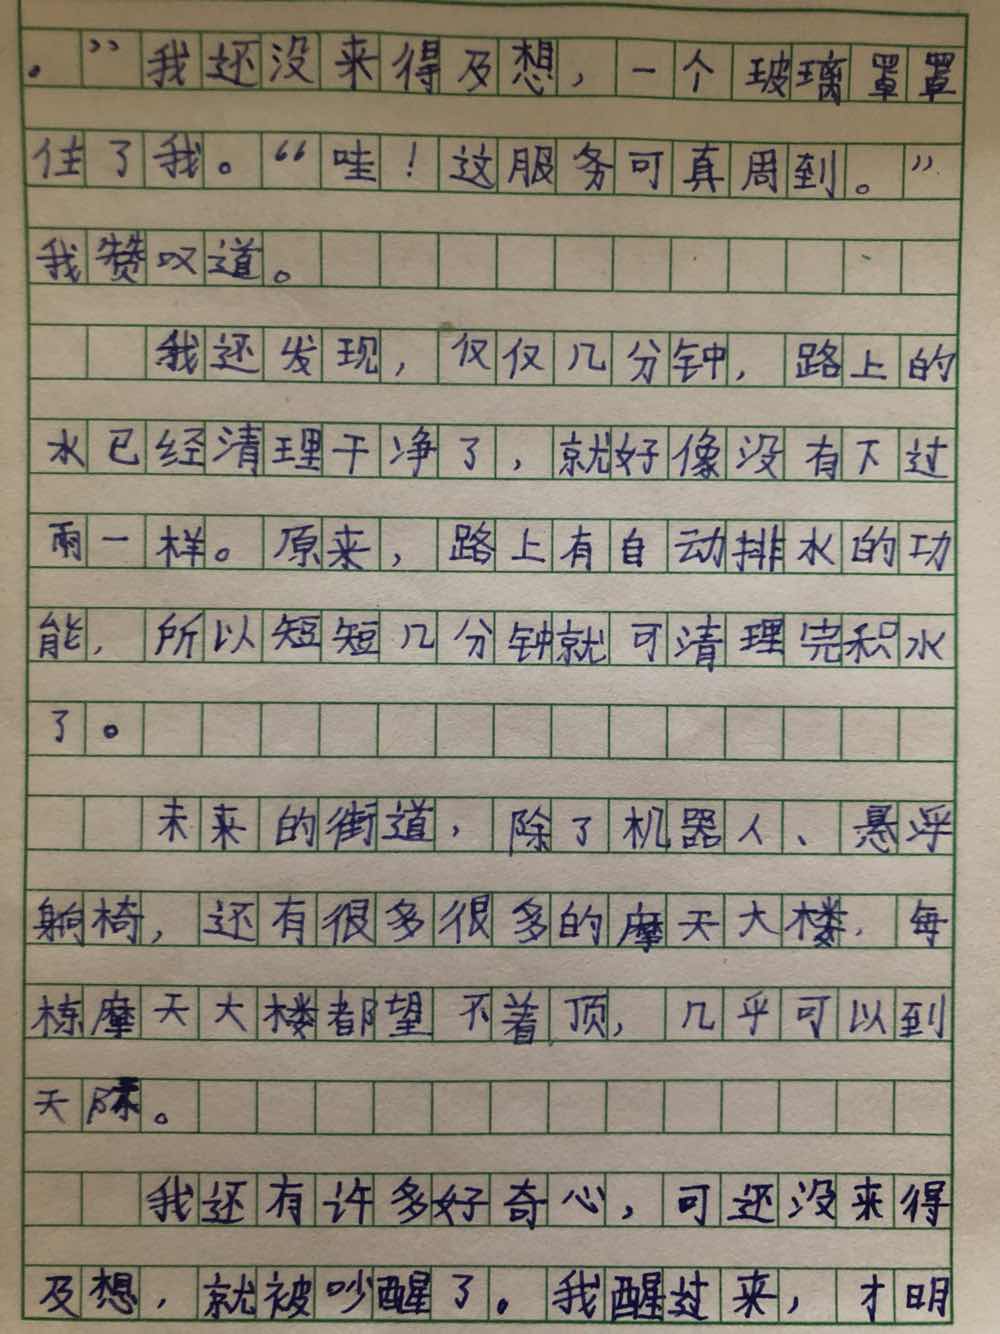 。”我还没来得及想，一个玻璃罩罩
住了我。“哇！这服务可真周到。”
我赞叹道。
我还发现，仅仅几分钟，路上的
水已经清理干净了，就好像没有下过
雨一样。原来，路上有自动排水的功
能，所以短短几分钟就可清理完积水
了。
未来的街道，除了机器人、悬浮
躺椅，还有很多很多的摩天大楼，每
栋摩天大楼都望不着顶，几乎可以到
天际。
我还有许多好奇心，可还没来得
及想，就被吵醒了。我醒过来，才明